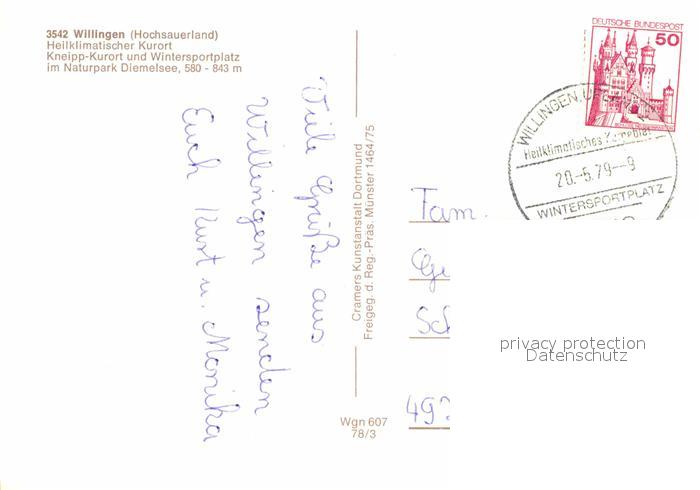 3542 Willingen (Hochsauerland)
Heilklimatischer Kurort
Kneipp-Kurort und Wintersportplatz
im Naturpark Diemelsee, 580 - 843 m
Viele Grüße aus
Willingen senden
Euch Kurt u. Monika
Cramers Kunstanstalt Dortmund
Freigeg. d. Reg.-Präs. Münster 1464/75
Wgn 607
78/3
DEUTSCHE BUNDESPOST
50
WILLINGEN,
Heilklimatisches
20.-6.79--9
WINTERSPORTPLATZ
Fam.
Ge
Sch
49
privacy protection
Datenschutz